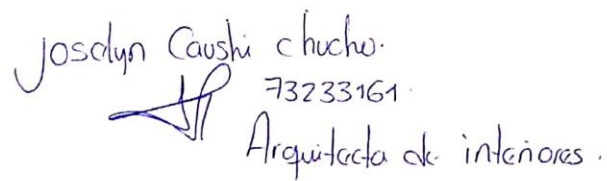 Joselyn Caushi chucho.
73233161.
Arquitecta de interiores.